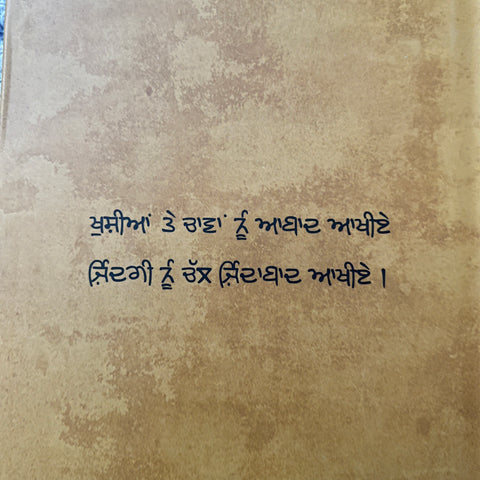 ਖੁਸ਼ੀਆਂ ਤੇ ਚਾਵਾਂ ਨੂੰ ਆਬਾਦ ਆਖੀਏ
ਜ਼ਿੰਦਗੀ ਨੂੰ ਚੱਲ ਜ਼ਿੰਦਾਬਾਦ ਆਖੀਏ ।